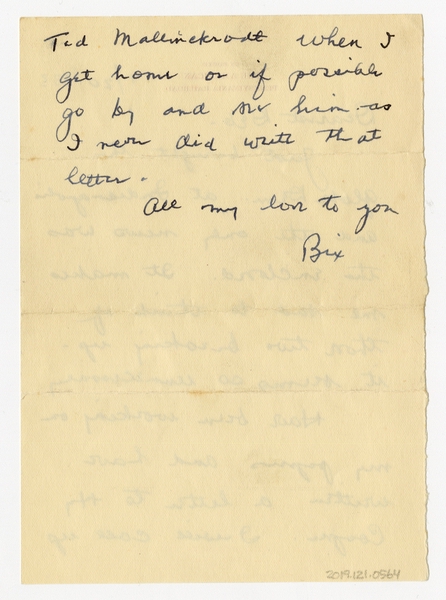 Ted Mallinckrodt when I
get home or if possible
go by and see him - as
I never did write that
letter.
All my love to you
Bix
2019.121.0564